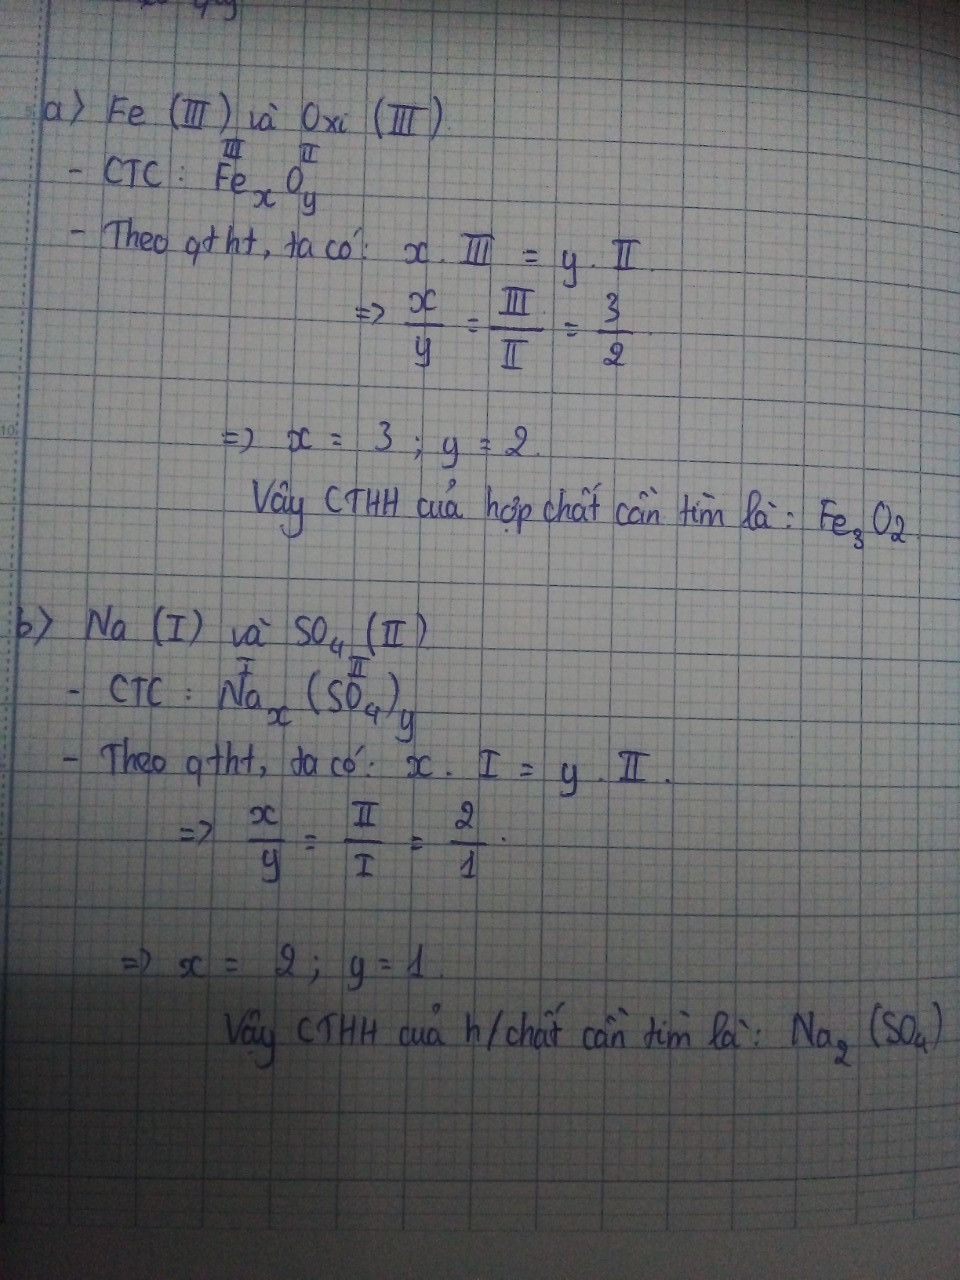 a) Fe (III) và Oxi (III).
III II
- CTC : Fe x O y
- Theo qtht, ta có: x . III = y . II.
=> x/y = III/II = 3/2.
=> x = 3 ; y = 2.
Vậy CTHH của hợp chất cần tìm là : Fe3O2
b) Na (I) và SO4 (II)
I II
- CTC : Na x (SO4) y
- Theo qtht, ta có: x . I = y . II .
=> x/y = II/I = 2/1 .
=> x = 2 ; y = 1.
Vậy CTHH của h/chất cần tìm là : Na2 (SO4)